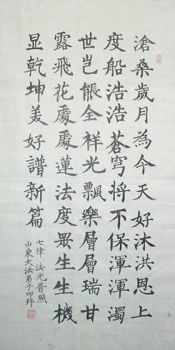 滄桑歲月為今天好沐洪恩上
度船浩浩蒼穹將不保渾渾濁
世豈能全祥光飄樂層層瑞甘
露飛花處處蓮法度眾生生機
显乾坤美好譜新篇
七律 法光普照
山東大法弟子叩拜